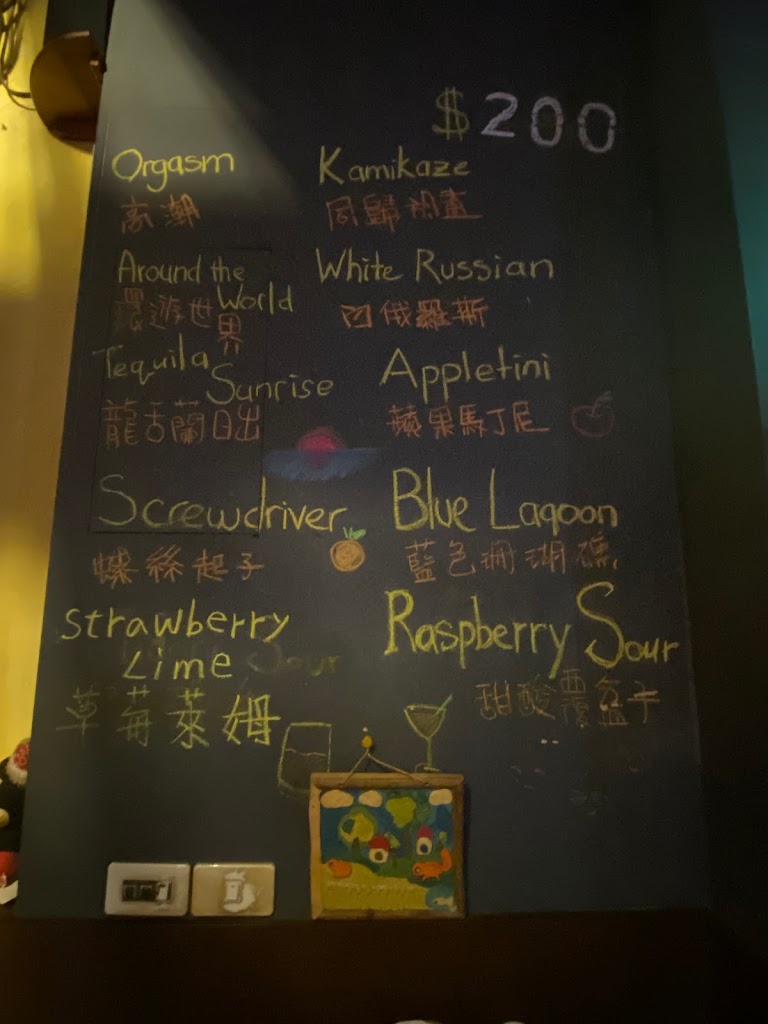 $200
Orgasm
高潮
Around the
World
環游世
界
Tequila
Sunrise
龍舌蘭日出
Screwdriver
螺絲起子
Strawberry
Lime
草莓萊姆
Kamikaze
同歸於盡
White Russian
白俄羅斯
Appletini
蘋果馬丁尼
Blue Lagoon
藍色珊瑚礁
Raspberry Sour
甜酸覆盆子